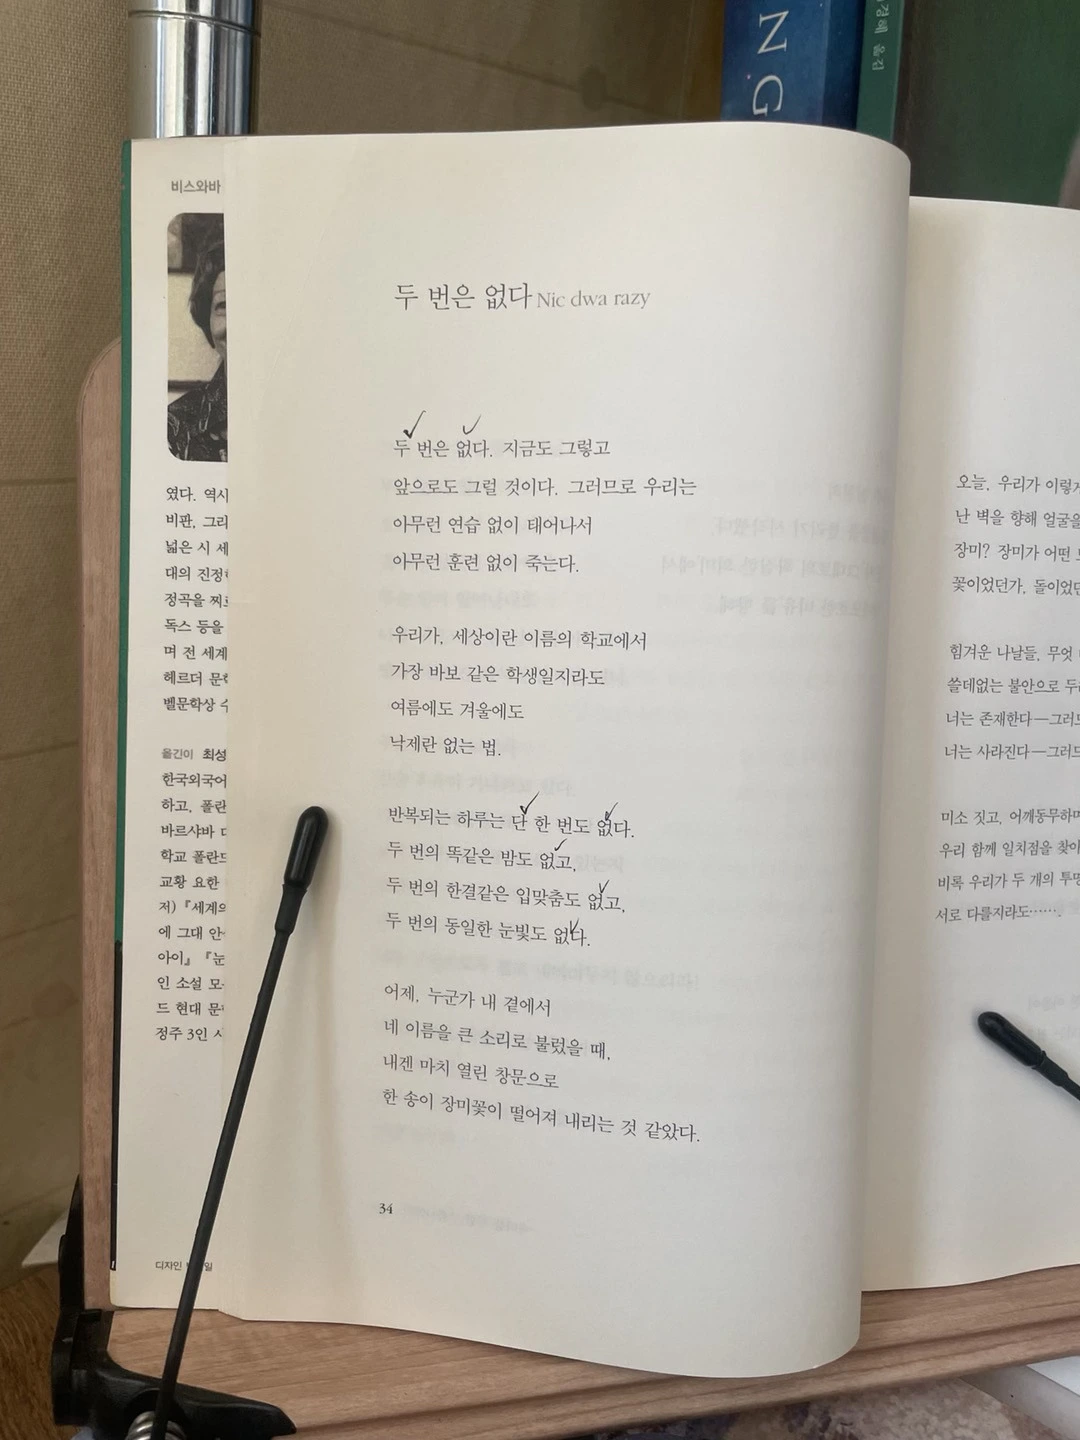 NG
옮김
비스와바
였다. 역시
비판, 그리
넓은 시 세
대의 진정
정곡을 찌르
독스 등을
며 전 세계
헤르더 문학
벨문학상 수
옮긴이 최성
한국외국어
하고, 폴란
바르샤바 대
학교 폴란드
교황 요한
저) 『세계의
에 그대 안
아이』 『눈
인 소설 모
드 현대 문
정주 3인 시
디자인
두 번은 없다 Nic dwa razy
두 번은 없다. 지금도 그렇고
앞으로도 그럴 것이다. 그러므로 우리는
아무런 연습 없이 태어나서
아무런 훈련 없이 죽는다.
우리가, 세상이란 이름의 학교에서
가장 바보 같은 학생일지라도
여름에도 겨울에도
낙제란 없는 법.
반복되는 하루는 단 한 번도 없다.
두 번의 똑같은 밤도 없고,
두 번의 한결같은 입맞춤도 없고,
두 번의 동일한 눈빛도 없다.
어제, 누군가 내 곁에서
네 이름을 큰 소리로 불렀을 때,
내겐 마치 열린 창문으로
한 송이 장미꽃이 떨어져 내리는 것 같았다.
34
오늘, 우리가 이렇게
난 벽을 향해 얼굴을
장미? 장미가 어떤
꽃이었던가, 돌이었던
힘겨운 나날들, 무엇
쓸데없는 불안으로
너는 존재한다—그러므
너는 사라진다—그러므
미소 짓고, 어깨동무하며
우리 함께 일치점을 찾아
비록 우리가 두 개의 투명
서로 다를지라도…….